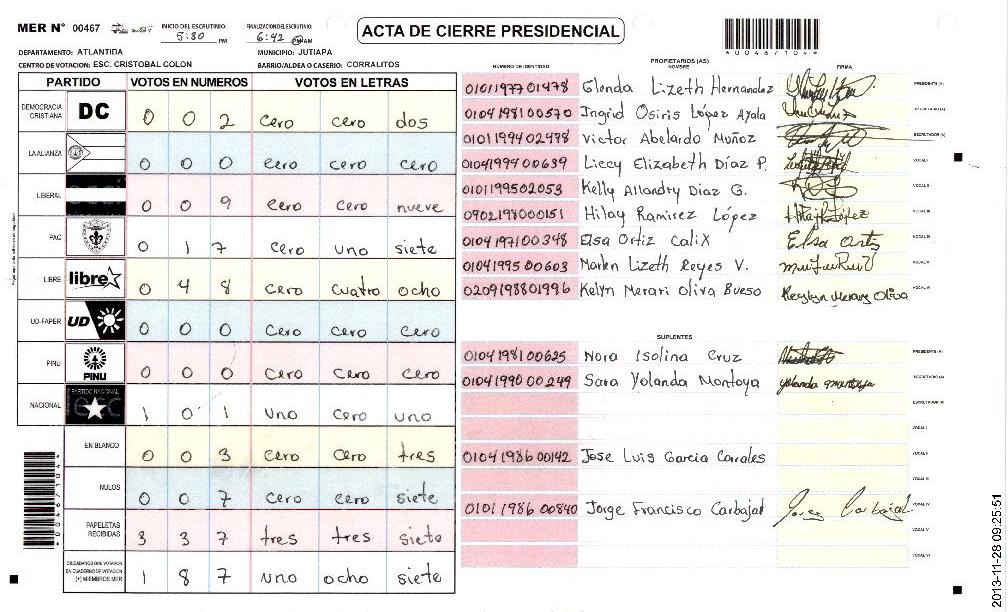 MER N° 00467
INICIO DEL ESCRUTINIO: 5:30 PM
FINALIZACION DEL ESCRUTINIO: 6:42 PM AM
ACTA DE CIERRE PRESIDENCIAL
DEPARTAMENTO: ATLANTIDA
MUNICIPIO: JUTIAPA
CENTRO DE VOTACION: ESC. CRISTOBAL COLON
BARRIO/ALDEA O CASERIO: CORRALITOS
PARTIDO VOTOS EN NUMEROS VOTOS EN LETRAS
DEMOCRACIA CRISTIANA DC 0 0 2 cero cero dos
LA ALIANZA 0 0 0 cero cero cero
LIBERAL 0 0 9 cero cero nueve
PAC 0 1 7 cero uno siete
LIBRE libre 0 4 8 cero cuatro ocho
UD-FAPER UD 0 0 0 cero cero cero
PINU PINU 0 0 0 cero cero cero
NACIONAL PARTIDO NACIONAL 1 0 1 uno cero uno
EN BLANCO 0 0 3 cero cero tres
NULOS 0 0 7 cero cero siete
PAPELETAS RECIBIDAS 3 3 7 tres tres siete
CIUDADANOS QUE VOTARON EN CUADERNO DE VOTACION (+) MIEMBROS MER 1 8 7 uno ocho siete
PROPIETARIOS (AS)
NUMERO DE IDENTIDAD NOMBRE FIRMA
0101197701478 Glenda Lizeth Hernandez PRESIDENTE (A)
0104198100570 Ingrid Osiris López Ayala SECRETARIO (A)
0101199402478 Victor Abelardo Muñoz ESCRUTADOR (A)
0104199400639 Liccy Elizabeth Díaz P. VOCAL I
0101199502053 Kelly Allandry Diaz G. VOCAL II
0902198000151 Hilay Ramirez López VOCAL III
0104197100348 Elsa Ortiz Calix Elsa Ortiz VOCAL IV
0104199500603 Marlen Lizeth Reyes V. VOCAL V
0209198801996 Kelyn Merari Oliva Bueso VOCAL VI
SUPLENTES
0104198100625 Nora Isolina Cruz PRESIDENTE (A)
0104199000249 Sara Yolanda Montoya yolanda montoya SECRETARIO (A)
ESCRUTADOR (A)
VOCAL I
0104198600142 Jose Luis Garcia Corrales VOCAL II
VOCAL III
0101198600840 Jorge Francisco Carbajal Jorge Carbajal VOCAL IV
VOCAL V
VOCAL VI
00467104
00467104
2013-11-28 09:25:51